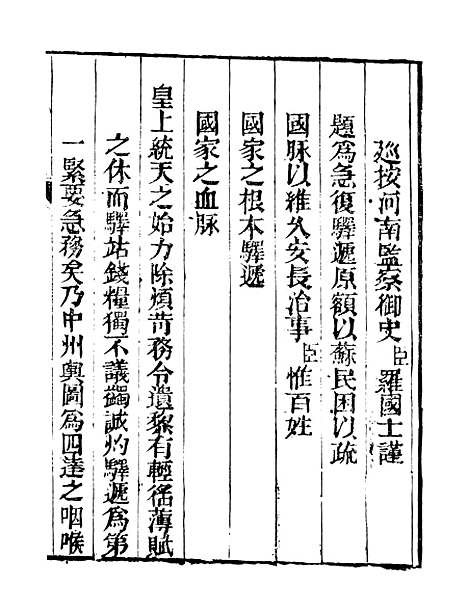 巡按河南監察御史臣羅國士謹
題爲急復驛遞原額以蘇民困以疏
國脉以維久安長治事臣惟百姓
國家之根本驛遞
國家之血脉
皇上統天之始力除煩苛務令遺黎有輕徭薄賦
之休而驛站錢糧獨不議蠲誠灼驛遞爲第
一緊要急務矣乃中州輿圖爲四達之咽喉